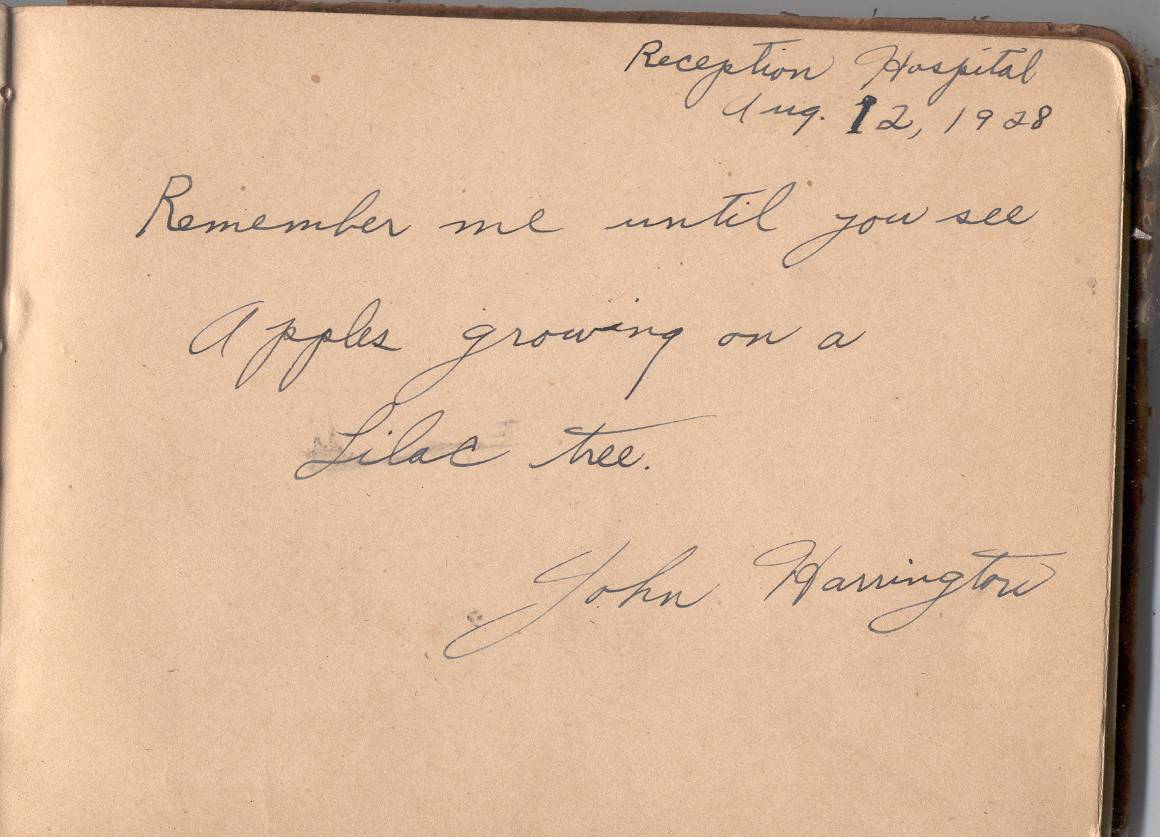 Reception Hospital
Aug. 12, 1928
Remember me until you see
Apples growing on a
Lilac tree.
John Harrington